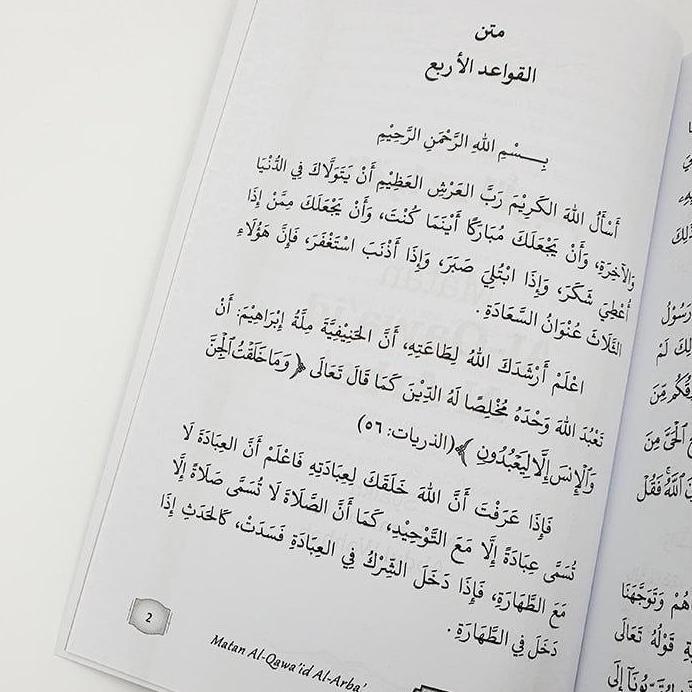 متن
القواعد الأربع
بِسْمِ اللهِ الرَّحْمَنِ الرَّحِيْمِ
أَسْأَلُ اللهَ الكَرِيْمَ رَبَّ العَرْشِ العَظِيْمِ أَنْ يَتَوَلَّاكَ فِي الدُّنْيَا
وَالآخِرَةِ، وَأَنْ يَجْعَلَكَ مُبَارَكًا أَيْنَمَا كُنْتَ، وَأَنْ يَجْعَلَكَ مِمَّنْ إِذَا
أُعْطِيَ شَكَرَ، وَإِذَا ابْتُلِيَ صَبَرَ، وَإِذَا أَذْنَبَ اسْتَغْفَرَ، فَإِنَّ هَؤُلَاءِ
الثَّلَاثَ عُنْوَانُ السَّعَادَةِ.
اعْلَمْ أَرْشَدَكَ اللهُ لِطَاعَتِهِ، أَنَّ الحَنِيْفِيَّةَ مِلَّةُ إِبْرَاهِيْمَ: أَنْ
تَعْبُدَ اللهَ وَحْدَهُ مُخْلِصًا لَهُ الدِّيْنَ كَمَا قَالَ تَعَالَى ﴿وَمَا خَلَقْتُ ٱلْجِنَّ
وَٱلْإِنسَ إِلَّا لِيَعْبُدُونِ﴾ (الذريات: ٥٦)
فَإِذَا عَرَفْتَ أَنَّ اللهَ خَلَقَكَ لِعِبَادَتِهِ فَاعْلَمْ أَنَّ العِبَادَةَ لَا
تُسَمَّى عِبَادَةً إِلَّا مَعَ التَّوْحِيْدِ، كَمَا أَنَّ الصَّلَاةَ لَا تُسَمَّى صَلَاةً إِلَّا
مَعَ الطَّهَارَةِ، فَإِذَا دَخَلَ الشِّرْكُ فِي العِبَادَةِ فَسَدَتْ، كَالحَدَثِ إِذَا
دَخَلَ فِي الطَّهَارَةِ.
2
Matan Al-Qawa'id Al-Arba'